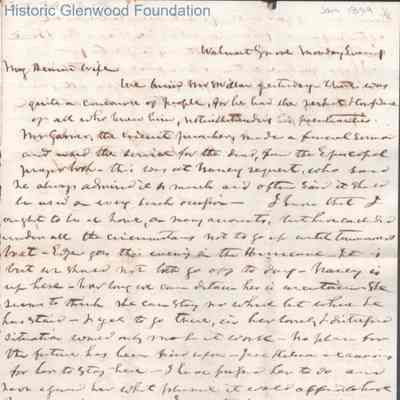 Historic Glenwood Foundation
Jan 1859
Walnut Grove Monday Evening
My Dearest Wife
We buried Mr Millar yesterday - there was
quite a concourse of people, for he had the perfect confidence
of all who knew him, notwithstanding his peculiarities.
Mr the Vincent preacher, made a funeral sermon
and used the service for the dead, from the Episcopal
prayer book - this was at Nancy request, who said
he always admired it so much and often said it should
be used on every such occasion - I know that I
ought to be at home, on many accounts, but have concluded
under all the circumstances not to go up until tomorrow
but - goes this evening on the Hurricane - It is
best we should not both go off to day - Nancy is
up here - how long we can detain her is uncertain - She
seems to think she can stay no where but where he
has staid - & yet to go there, in her lonely & distressed
situation would only make it worse - No plan for
the future has been fixed upon -
for her to stay here - I have her to do and
have urged her what pleasure it would afford